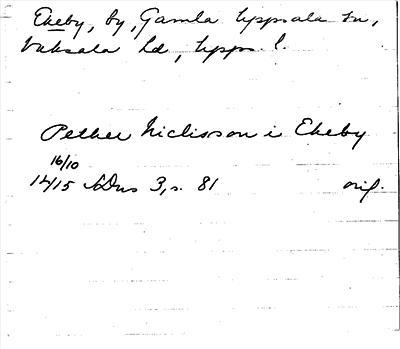 Ekeby, by, Gamla Uppsala sn,
Vaksala hd, Upps. l.
Pether Niclisson i Ekeby
16/10
1415 SDns 3, s. 81 orig.